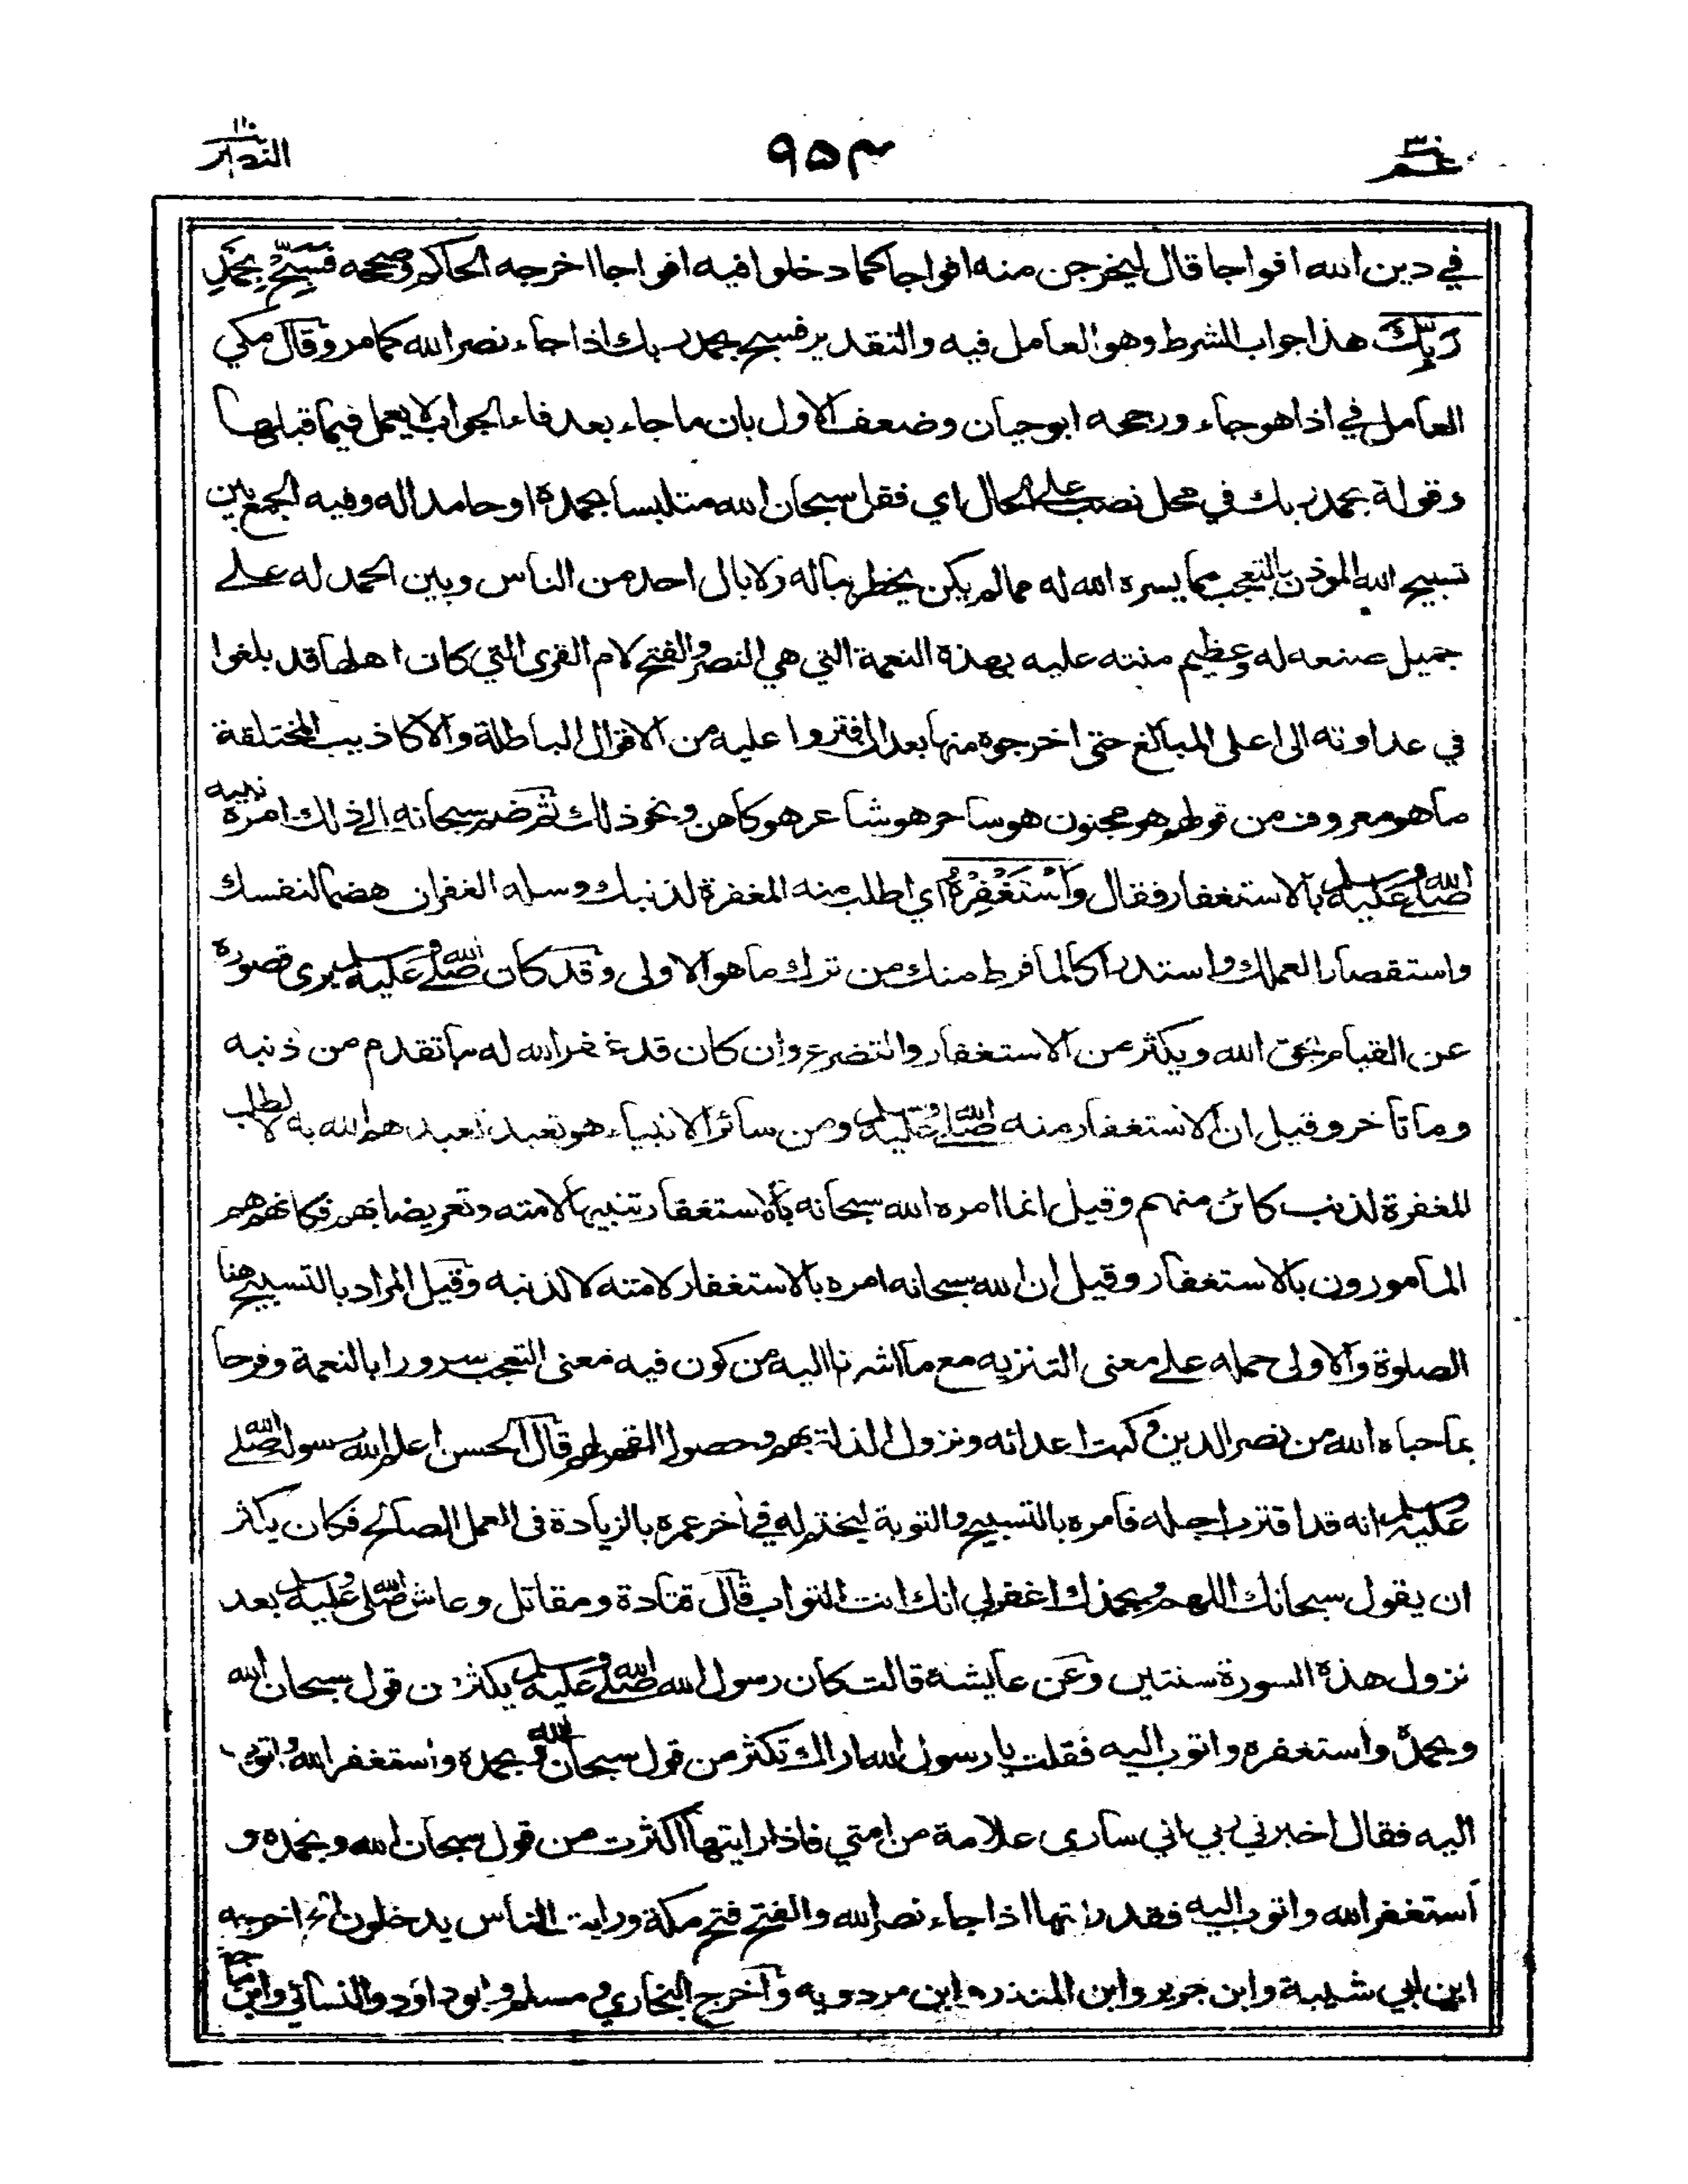 عم ٣٠
٩٥٣
النصر ١١٠
في دين الله افواجا قال ليخرجن منه افواجا كما دخلوا فيه افواجا اخرجه الحاكم وصححه فَسَبِّحْ بِحَمْدِ
رَبِّكَ هذا جواب الشرط وهو العامل فيه والتقدير فسبح بحمد ربك اذا جاء نصر الله كما مر وقال مكي
العامل في اذا هو جاء ورجحه ابو حيان وضعف الاول بان ما جاء بعد فاء الجواب لا يعمل فيما قبلها
وقوله بحمد ربك في محل نصب على الحال اي فقل سبحان الله متلبسا بحمده او حامدا له وفيه الجمع بين
تسبيح الله الموذن بالتعجب مما يسره الله له مما لم يكن يخطر بباله ولا بال احد من الناس وبين الحمد له على
جميل صنعه له وعظيم منته عليه بهذه النعمة التي هي النصر والفتح لام القرى التي كان اهلها قد بلغوا
في عداوته الى اعلى المبالغ حتى اخرجوه منها بعد ان افتروا عليه من الاقوال الباطلة والاكاذيب المختلقة
ما هو معروف من قولهم هو مجنون هو ساحر هو شاعر هو كاهن ونحو ذلك ثم ضم سبحانه الى ذلك امره نبيه
صلى الله عليه وسلم بالاستغفار فقال وَاسْتَغْفِرْهُ اي اطلب منه المغفرة لذنبك وسله الغفران هضما لنفسك
واستقصارا لعملك واستدراكا لما فرط منك من ترك ما هو الاولى وقد كان صلى الله عليه وسلم يرى قصوره
عن القيام بحق الله ويكثر من الاستغفار والتضرع وان كان قد غفر الله له ما تقدم من ذنبه
وما تأخر وقيل ان الاستغفار منه صلى الله عليه وسلم ومن سائر الانبياء هو تعبد تعبدهم الله به لا لطلب
المغفرة لذنب كائن منهم وقيل انما امره الله سبحانه بالاستغفار تنبيها لامته وتعريضا بهم فكانهم هم
المأمورون بالاستغفار وقيل ان الله سبحانه امره بالاستغفار لامته لا لذنبه وقيل المراد بالتسبيح هنا
الصلوة والاولى حمله على معنى التنزيه مع ما اشرنا اليه من كون فيه معنى التعجب سرورا بالنعمة وفرحا
بما حباه الله من نصر الدين وكبت اعدائه ونزول الذلة بهم وحصول القهر لهم قال الحسن اعلم الله رسوله صلى الله
عليه وسلم انه قد اقترب اجله فأمره بالتسبيح والتوبة ليختم له في آخر عمره بالزيادة في العمل الصالح فكان يكثر
ان يقول سبحانك اللهم وبحمدك اغفر لي انك انت التواب قال قتادة ومقاتل وعاش صلى الله عليه وسلم بعد
نزول هذه السورة سنتين وعن عايشة قالت كان رسول الله صلى الله عليه وسلم يكثر من قول سبحان الله
وبحمده واستغفره واتوب اليه فقلت يا رسول الله اراك تكثر من قول سبحان الله وبحمده واستغفر الله واتوب
اليه فقال اخبرني ربي اني سأرى علامة من امتي فاذا رايتها اكثرت من قول سبحان الله وبحمده و
استغفر الله واتوب اليه فقد رايتها اذا جاء نصر الله والفتح فتح مكة ورايت الناس يدخلون الخ اخرجه
ابن ابي شيبة وابن جرير وابن المنذر وابن مردويه وأخرج البخاري ومسلم وابو داود والنسائي وابن ماجة